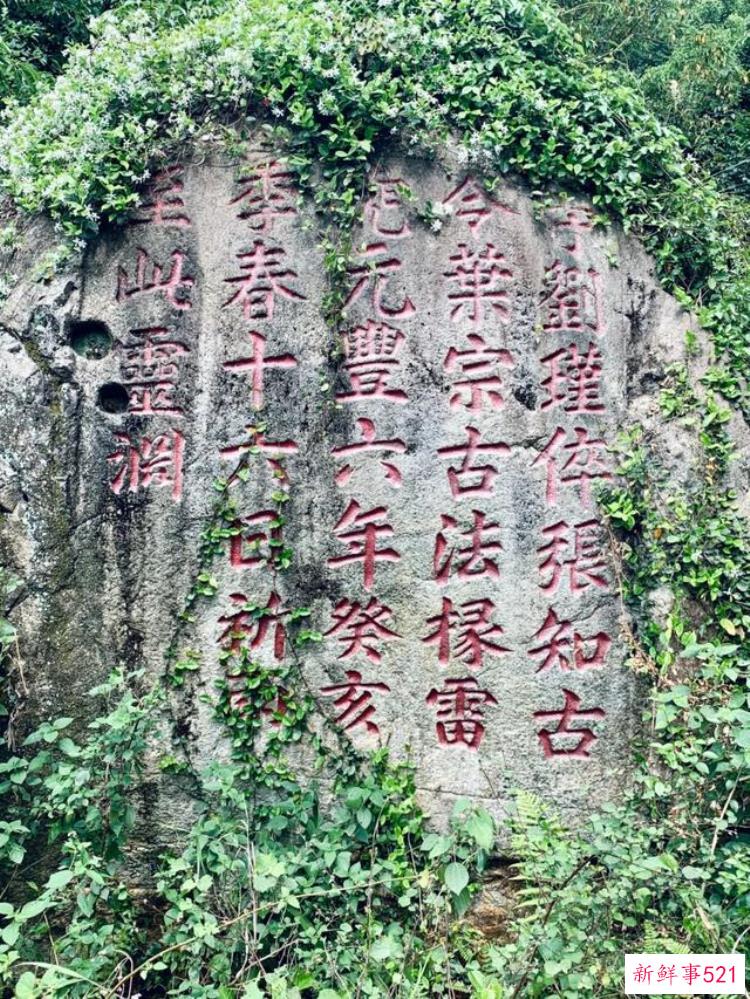 守劉瑾倅張知古
令葉宗古法掾雷
元豐六年癸亥
季春十六日祈雨
至此靈淵
新鮮事521